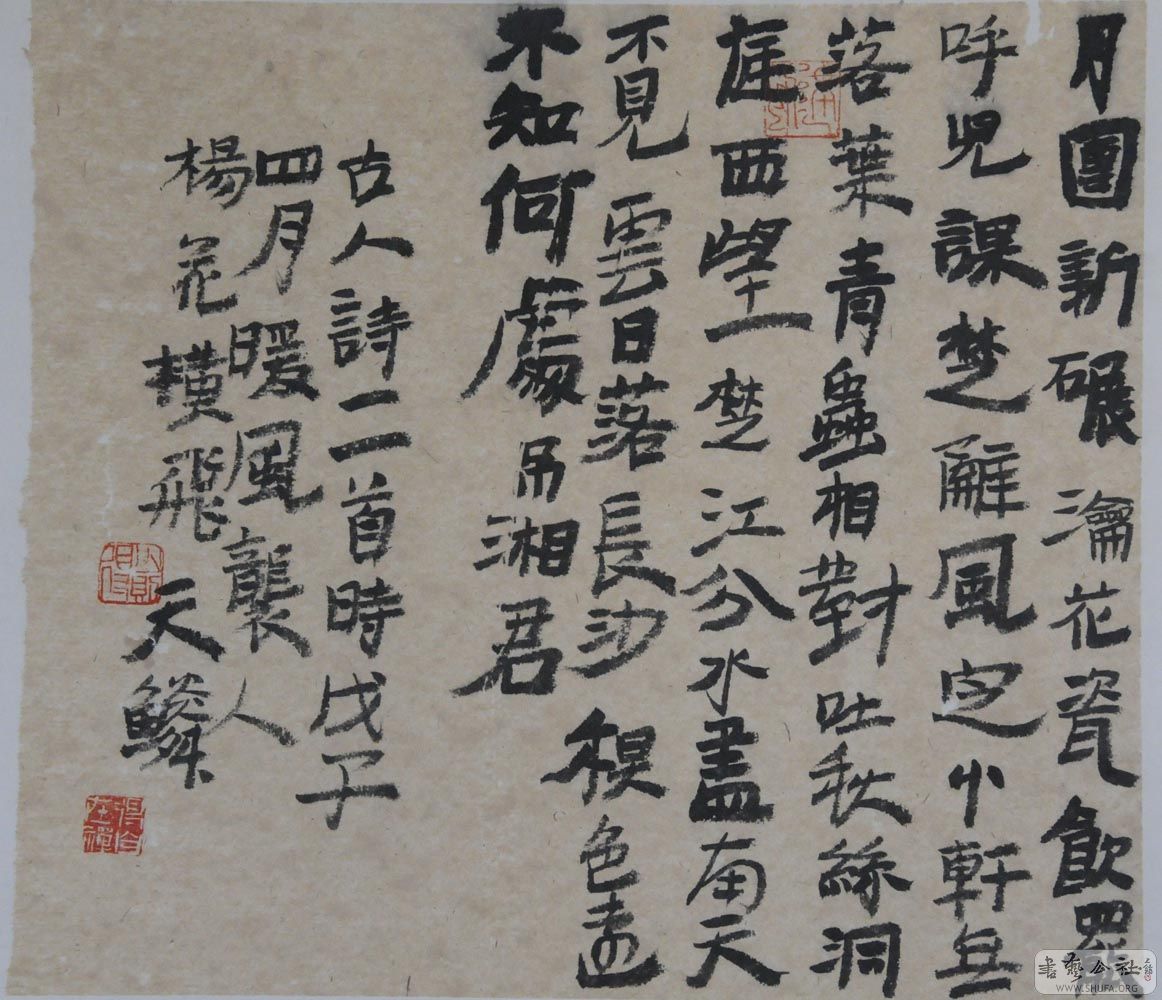 月團新碾瀹花瓷飲罷
呼兒課楚辭風定小軒無
落葉青蟲相對吐秋絲洞
庭西望楚江分水盡南天
不見雲日落長沙秋色遠
不知何處吊湘君
古人詩二首時戊子
四月暖風襲人
楊花橫飛天鱗
書藝公社
WWW.SHUFA.ORG